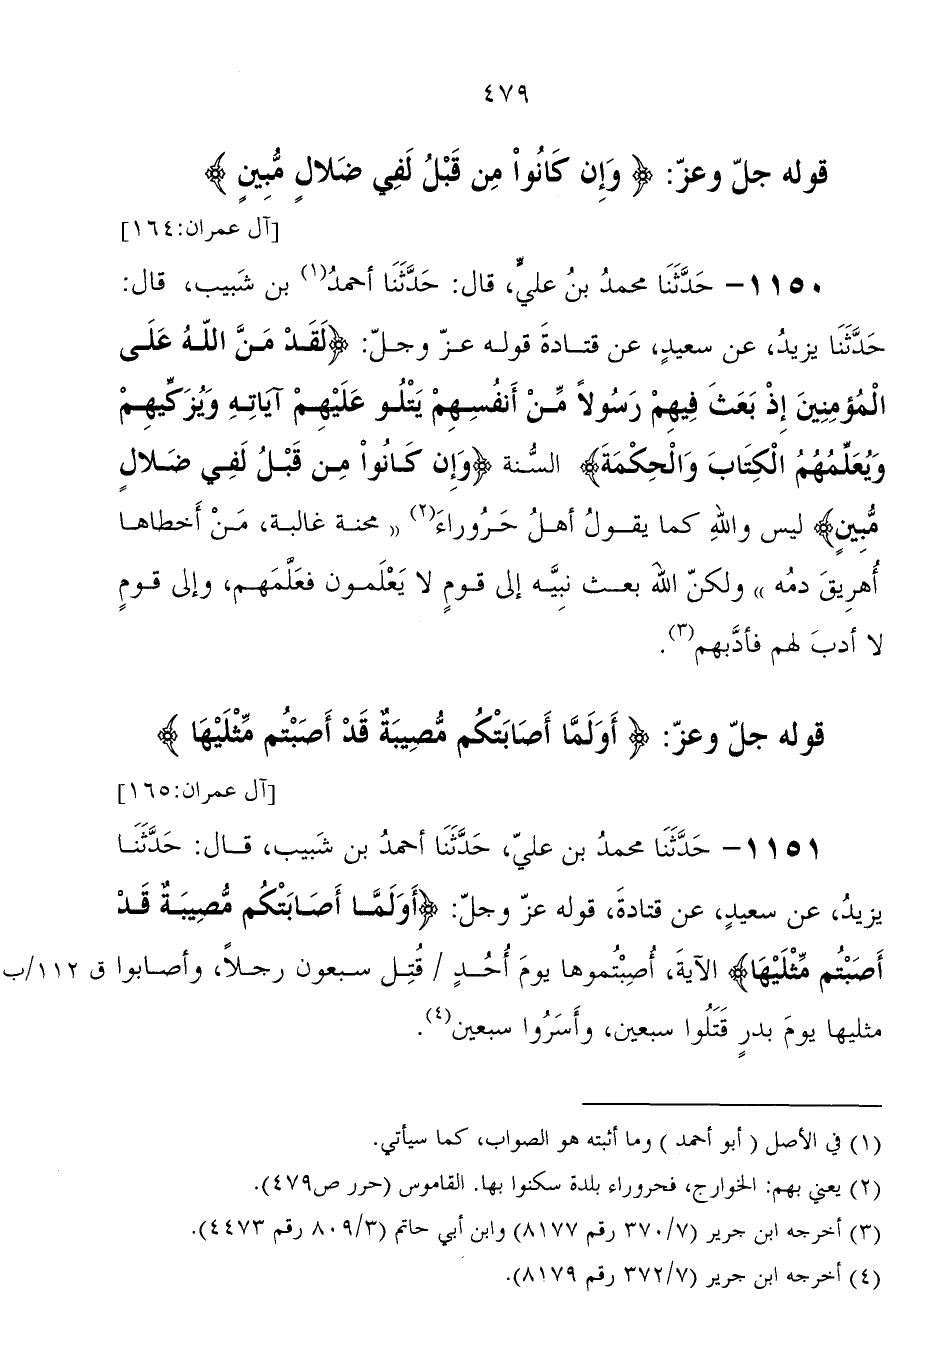 ٤٧٩
قوله جلّ وعزّ: ﴿ وَإِن كَانُواْ مِن قَبْلُ لَفِي ضَلالٍ مُّبِينٍ ﴾
[آل عمران:١٦٤]
١١٥٠- حَدَّثَنَا محمدُ بنُ عليٍّ، قال: حَدَّثَنَا أحمدُ(١) بن شَبيب، قال:
حَدَّثَنَا يزيدُ، عن سعيدٍ، عن قتادةَ قوله عزّ وجلّ: ﴿لَقَدْ مَنَّ اللَّهُ عَلَى
الْمُؤمِنِينَ إِذْ بَعَثَ فِيهِمْ رَسُولاً مِّنْ أَنفُسِهِمْ يَتْلُو عَلَيْهِمْ آيَاتِهِ وَيُزَكِّيهِمْ
وَيُعَلِّمُهُمُ الْكِتَابَ وَالْحِكْمَةَ﴾ السُّنة ﴿وَإِن كَانُواْ مِن قَبْلُ لَفِي ضَلالٍ
مُّبِينٍ﴾ ليس واللهِ كما يقولُ أهلُ حَرُوراءَ(٢) « محنة غالبة، مَنْ أَخطاها
أُهرِيقَ دمُه » ولكنّ اللهَ بعث نبيَّه إلى قومٍ لا يَعْلَمون فعَلَّمَهم، وإلى قومٍ
لا أدبَ لهم فأدَّبهم(٣).
قوله جلّ وعزّ: ﴿ أَوَلَمَّا أَصَابَتْكُم مُّصِيبَةٌ قَدْ أَصَبْتُم مِّثْلَيْهَا ﴾
[آل عمران:١٦٥]
١١٥١- حَدَّثَنَا محمدُ بن عليّ، حَدَّثَنَا أحمدُ بن شَبيب، قال: حَدَّثَنَا
يزيدُ، عن سعيدٍ، عن قتادةَ، قوله عزّ وجلّ: ﴿أَوَلَمَّا أَصَابَتْكُم مُّصِيبَةٌ قَدْ
أَصَبْتُم مِّثْلَيْهَا﴾ الآيةَ، أُصِبْتُموها يومَ أُحُدٍ / قُتِل سبعون رجلاً، وأصابوا ق ١١٢/ب
مثليها يومَ بدرٍ قَتَلُوا سبعين، وأَسَرُوا سبعين(٤).
(١) في الأصل ( أبو أحمد ) وما أثبته هو الصواب، كما سيأتي.
(٢) يعني بهم: الخوارج، فحروراء بلدة سكنوا بها. القاموس (حرر ص٤٧٩).
(٣) أخرجه ابن جرير (٣٧٠/٧ رقم ٨١٧٧) وابن أبي حاتم (٨٠٩/٣ رقم ٤٤٧٣).
(٤) أخرجه ابن جرير (٣٧٢/٧ رقم ٨١٧٩).